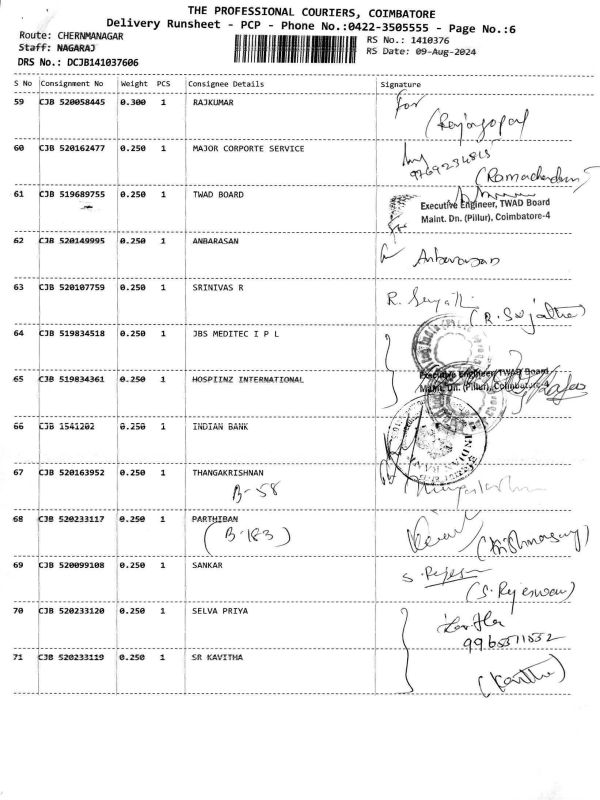 THE PROFESSIONAL COURIERS, COIMBATORE
Delivery Runsheet - PCP - Phone No.:0422-3505555 - Page No.:6
Route: CHERNMANAGAR
RS No.: 1410376
Staff: NAGARAJ
RS Date: 09-Aug-2024
DRS No.: DCJB141037606
S No Consignment No Weight PCS Consignee Details Signature
59 CJB 520058445 0.300 1 RAJKUMAR for
(Rajagopal
60 CJB 520162477 0.250 1 MAJOR CORPORTE SERVICE
9769234815
(Ramachandran)
61 CJB 519689755 0.250 1 TWAD BOARD
Executive Engineer, TWAD Board
Maint. Dn. (Pillur), Coimbatore-4
62 CJB 520149995 0.250 1 ANBARASAN
Anbarasan
63 CJB 520107759 0.250 1 SRINIVAS R
R. Sujatha
(R. Sujatha)
64 CJB 519834518 0.250 1 JBS MEDITEC I P L
65 CJB 519834361 0.250 1 HOSPIINZ INTERNATIONAL
Executive Engineer, TWAD Board
Maint. Dn. (Pillur), Coimbatore-4
66 CJB 1541202 0.250 1 INDIAN BANK
INDIAN BANK
67 CJB 520163952 0.250 1 THANGAKRISHNAN
B-58
68 CJB 520233117 0.250 1 PARTHIBAN
(B-183)
(Krishnasamy)
69 CJB 520099108 0.250 1 SANKAR
S. Rajeswari
(S. Rajeswari)
70 CJB 520233120 0.250 1 SELVA PRIYA
9965571552
71 CJB 520233119 0.250 1 SR KAVITHA
(Kavitha)